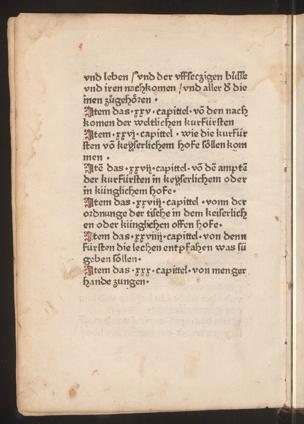 vnd leben / vnd der vffseczigen hüsse
vnd iren nachkomen / vnd aller d̕ die
inen zůgehören ·
Item das · xxv · capittel · võ den nach
komen der weltlichen kurfürsten
Item · xxvj · capittel · wie die kurfür
sten vō keyserlichem hofe söllen kom
men ·
Itē das · xxvij · capittel · vō dē amptē
der kurfürsten in keyserlichem oder
in künglichem hofe ·
Item das · xxviij · capittel · vonn der
ordnunge der tische in dem keiserlich
en oder künglichen offen hofe ·
Item das · xxviiij · capittel · von denn
fürsten die lechen entpfahen was sü
geben söllen ·
Item das · xxx · capittel · von menger
hande zungen ·